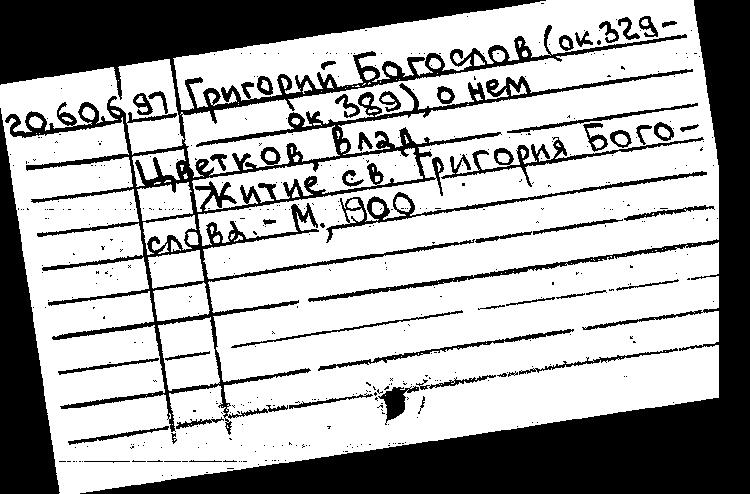 20.60.6.97 Григорий Богослов (ок.329-
ок. 389), о нем
Цветков, Влад.
Житие св. Григория Бого-
слова. - М., 1900